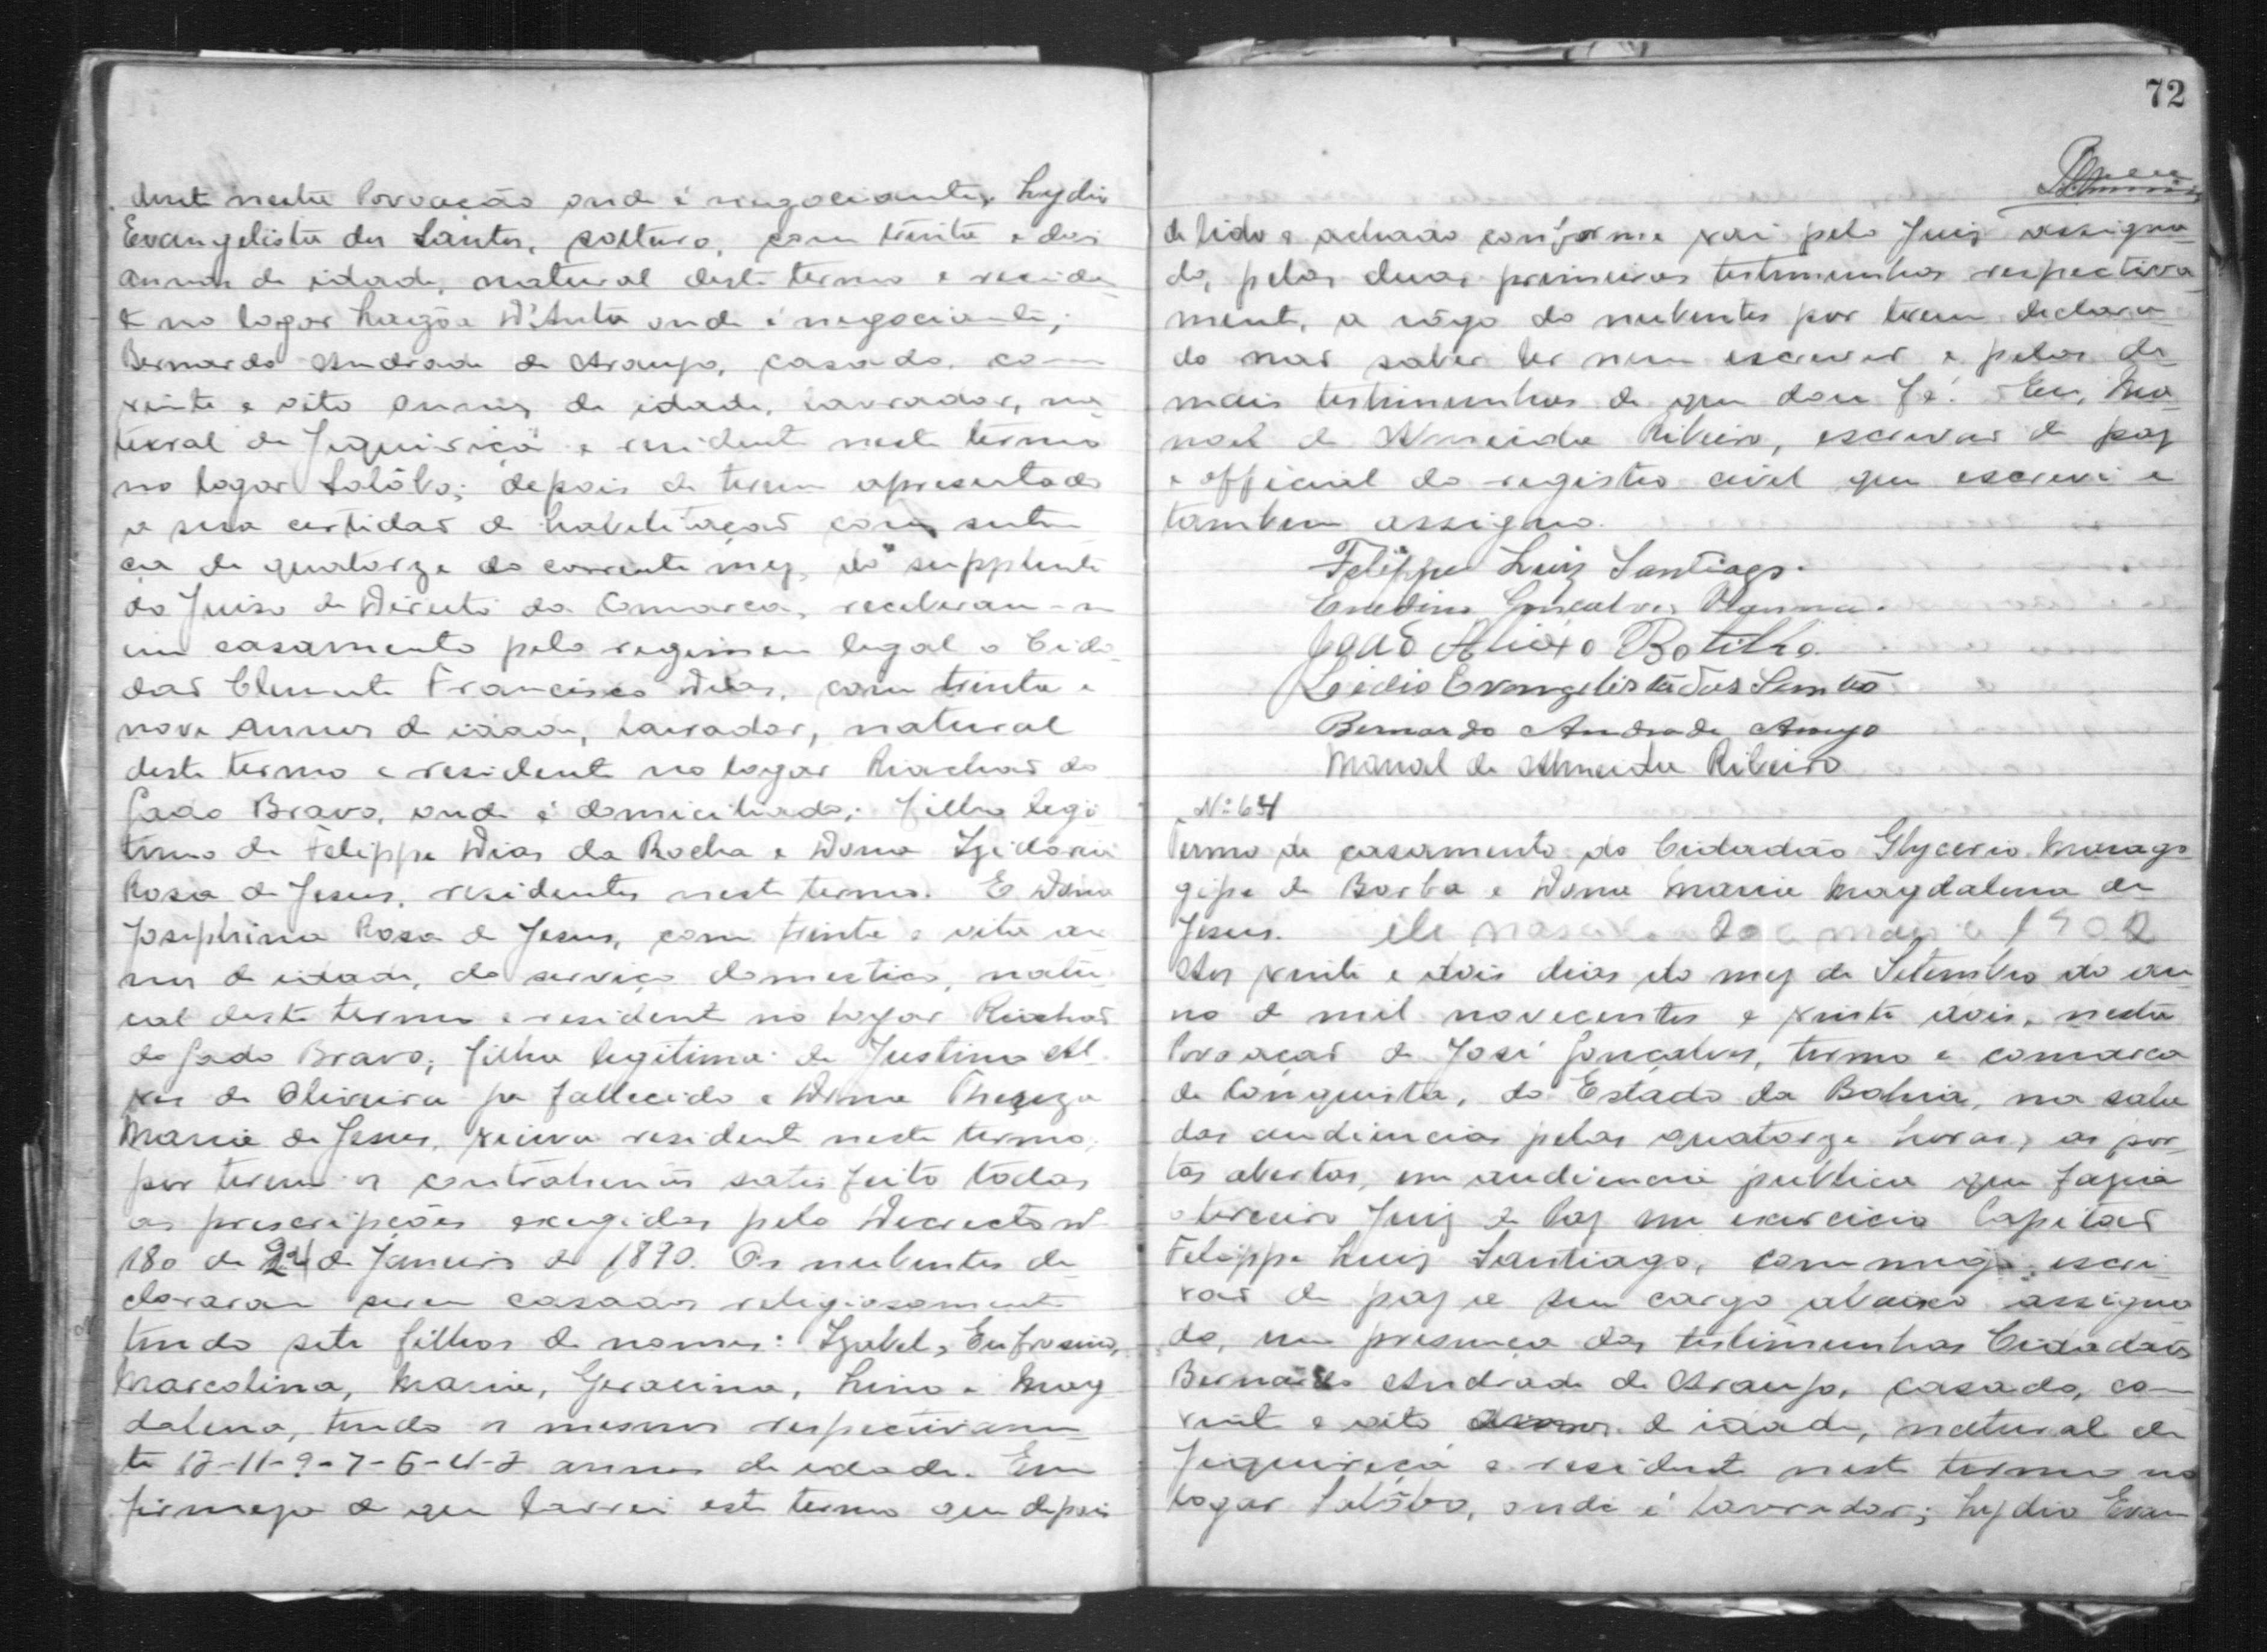 dent nesta Povoação onde é negociante, Lydio
Evangelista dos Santos, solteiro, com trinta e dois
annos de idade, natural deste termo e reside
te no logar Lagôa D'Anta onde é negociante;
Bernardo Andrade de Araujo, casado, com
vinte e oito annos de idade, lavrador, na
tural de Jiquiriçá e resident neste termo
no logar Salôbo; depois de terem apresentado
a sua certidão de habelitação com senten
ça de quatorze do corrente mez, do supplente
do Juiso de Direito da Comarca, receberam-se
em casamento pelo regimen legal o Cida
dão Clemente Francisco Dias, com trinta e
nove annos de idade, lavrador, natural
deste termo e resident no logar Riachão do
Gado Bravo, onde é domiciliado; filho legi
timo de Felippe Dias da Rocha e Dona Izidoria
Rosa de Jesus, residentes neste termo. E Dona
Josephina Rosa de Jesus, com trinta e oito an
nos de idade, do serviço domestico, natu
ral deste termo e resident no logar Riachão
do Gado Bravo; filha legitima de Justino Al
ves de Oliveira ja fallecido e Dona Thereza
Maria de Jesus, viuva resident neste termo,
por terem os contrahentes satisfeito todas
as prescripções exegidas pelo Decrecto N.
180 de 24 de Janeiro de 1890. Os nubentes de
clararam serem casados religiosamente
tendo sete filhos de nomes: Izabel, Eufrosina,
Marcolina, Maria, Geracina, Lino e Mag
dalena, tendo os mesmos respectivamen
te 12-11-9-7-6-4-2 annos de idade. Em
firmeza do que lavrei este termo que depois
72
de lido e achado conforme vai pelo Juiz assigna
do, pelas duas primeiras testimunhas respectiva
mente, a rôgo do nubentes por terem declara
do não saber ler nem escrever e pelas de
mais testimunhas do que dou fé. Eu, Ma
noel de Almeida Ribeiro, escrivão de paz
e official do registro civil que escrevi e
tambem assigno.
Felippe Luiz Santiago.
Enedino Gonçalves Vianna.
João Aleixo Botelho
Leidio Evangelista dos Santos
Bernardo Andrade Araujo
Manoel de Almeida Ribeiro
Nº 64
Termo de casamento do Cidadão Glycerio Marago
gipe de Borba e Dona Maria Magdalena de
Jesus. ele 1902
Aos vinte e dois dias do mez de Setembro do an
no de mil novecentos e vinte dois, nesta
Povoação de José Gonçalves, termo e comarca
de Conquista, do Estado da Bahia, na sala
das audiencias pelas quatorze horas, as por
tas abertas, em audiencia publica que fazia
o terceiro Juiz de Paz em exercicio Capitão
Felippe Luiz Santiago, commigo escri
vão de paz de seu cargo abaixo assigna
do, em presença das testimunhas Cidadãos
Bernardo Andrade de Araujo, casado, com
vint e oito annos de idade, natural de
Jiquiriçá e resident neste termo no
logar Salôbo, onde é lavrador; Lydio Evan